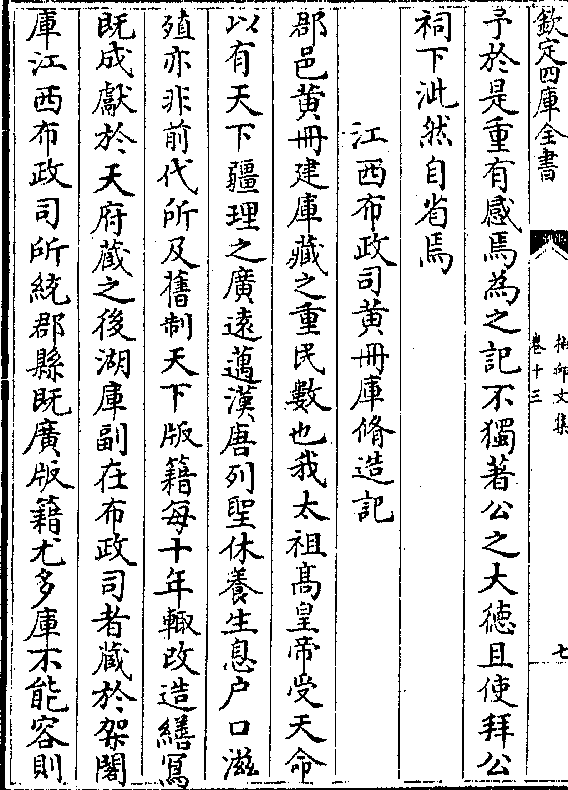 欽定四庫全書
卷十三
七
予於是重有感焉為之記不獨著公之大德且使拜公
祠下泚然自省焉
江西布政司黃冊庫脩造記
郡邑黃冊建庫藏之重民數也我太祖高皇帝受天命
以有天下疆理之廣遠邁漢唐列聖休養生息户口滋
殖亦非前代所及舊制天下版籍每十年輙改造繕冩
既成獻於天府藏之後湖庫副在布政司者藏於架閣
庫江西布政司所統郡縣既廣版籍尤多庫不能容則